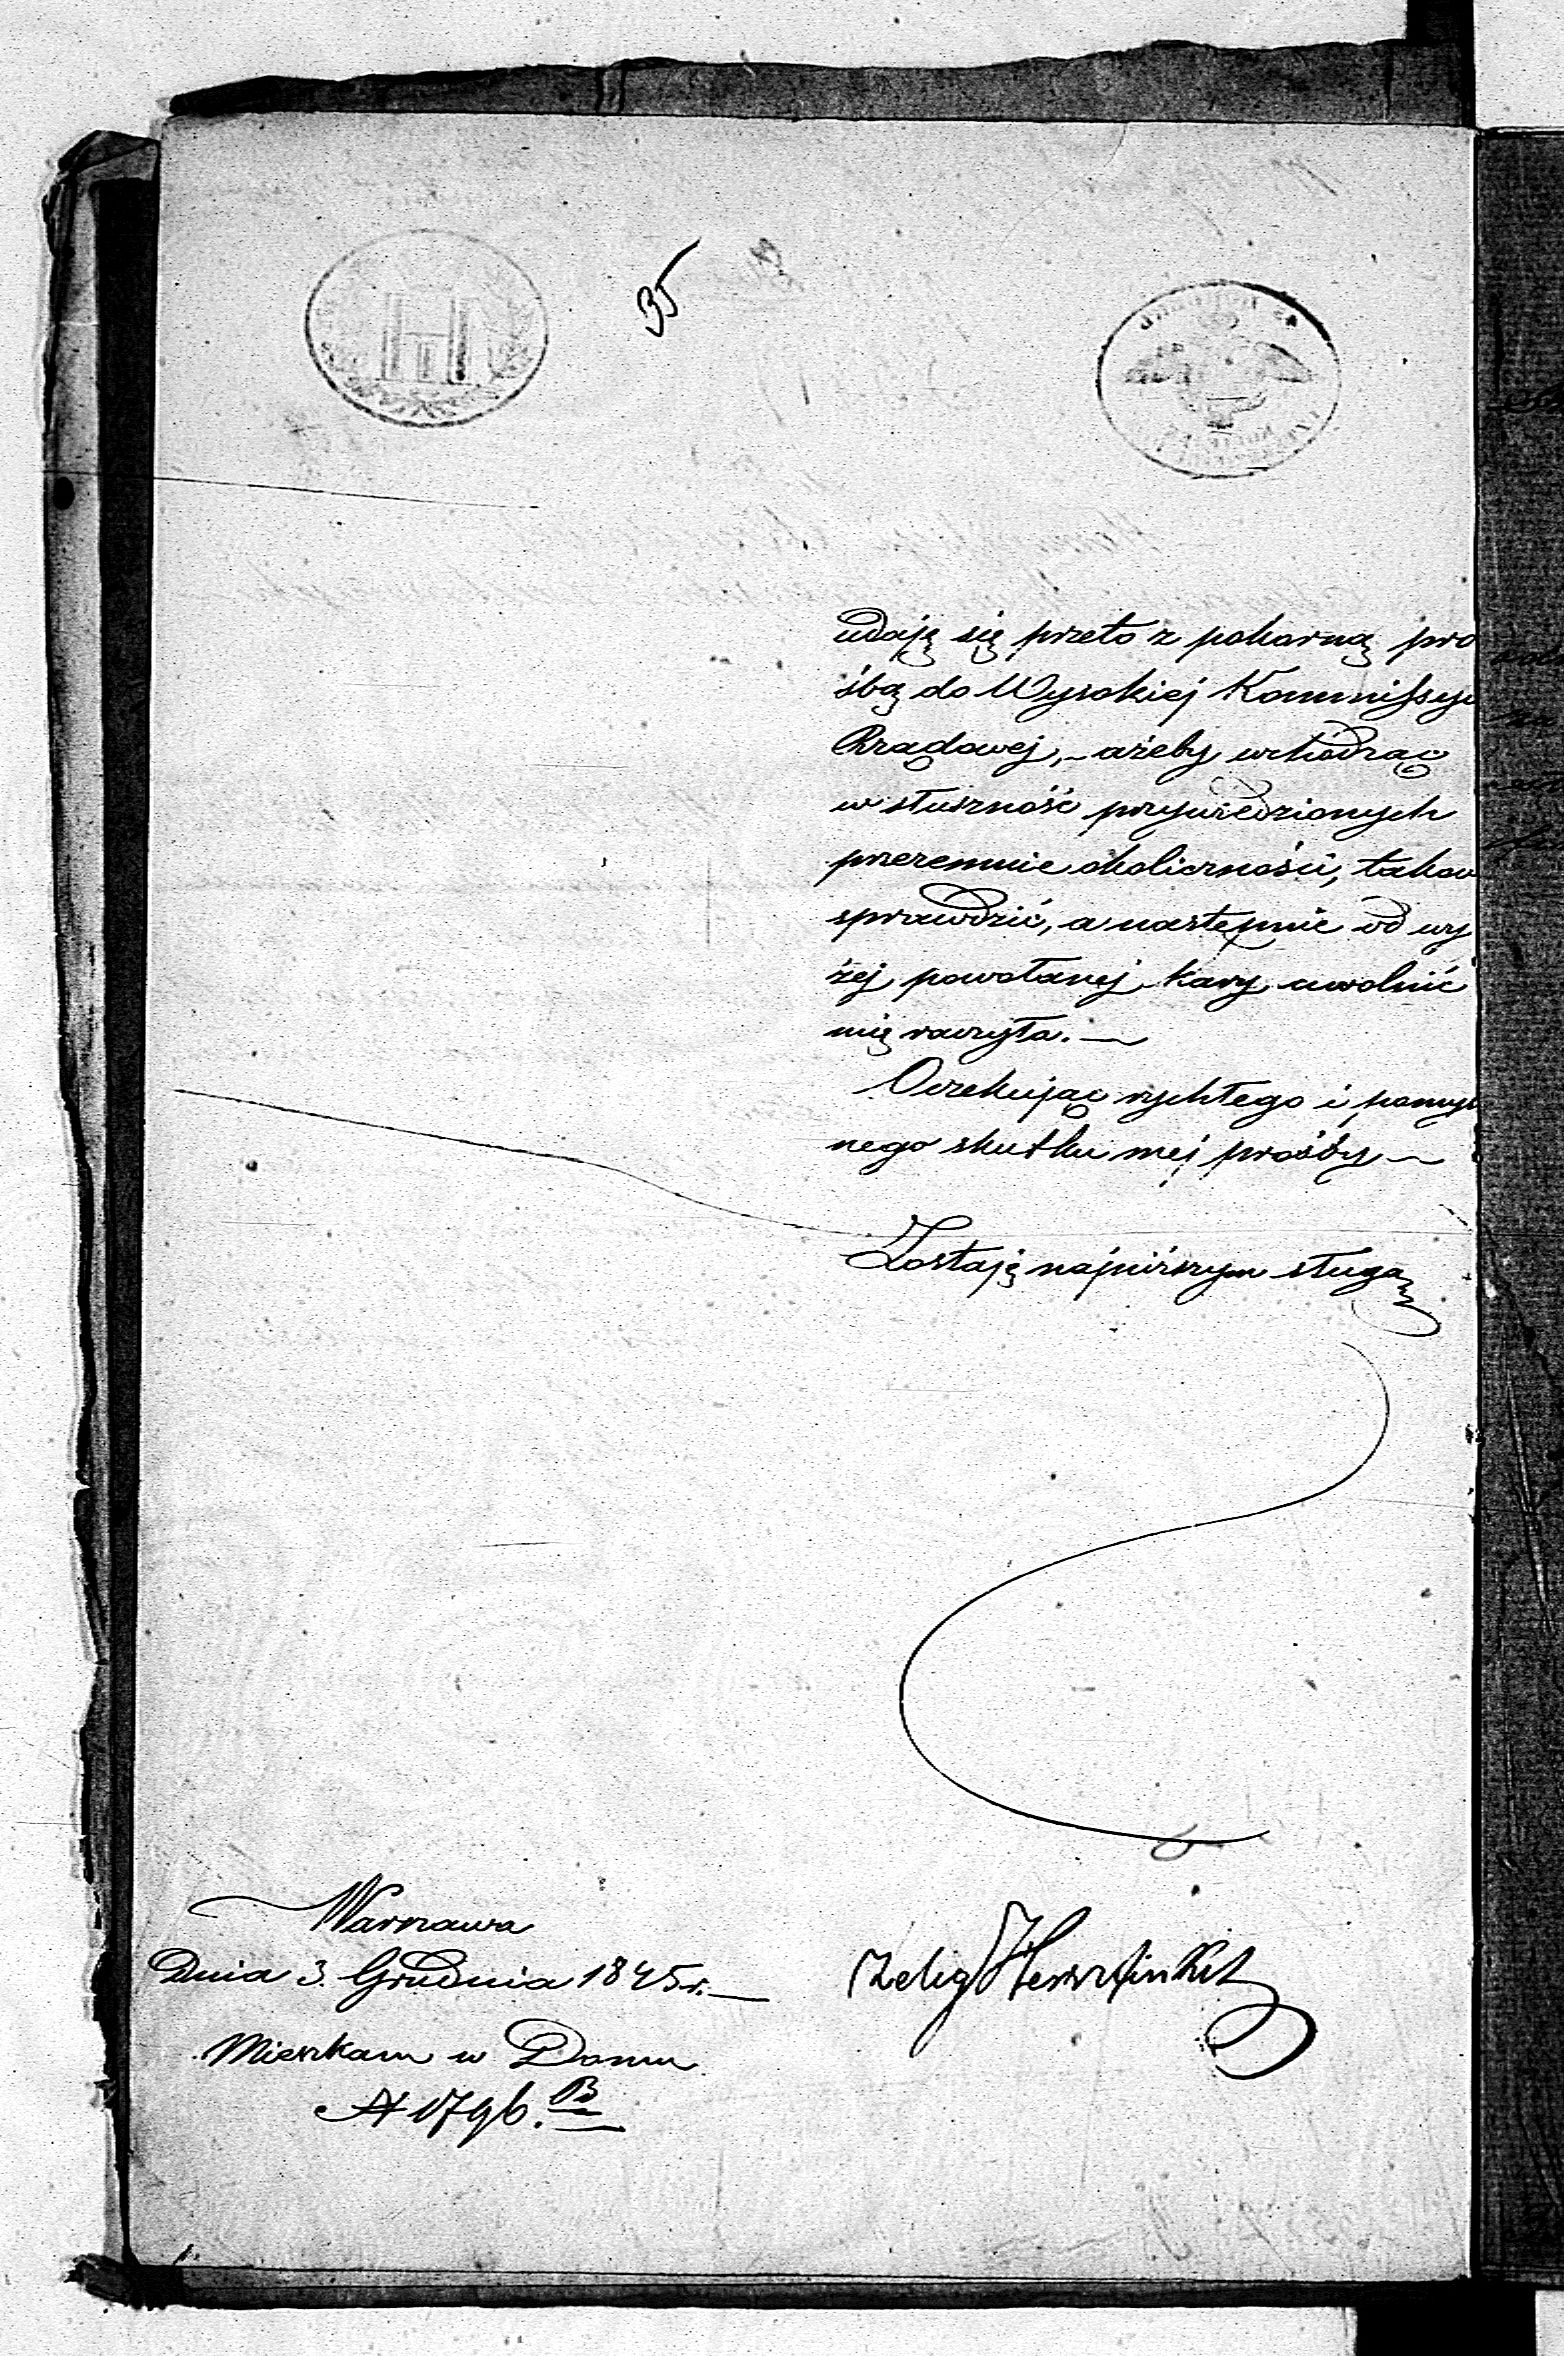 35
udaję się przeto z pokorną pro
śbą do Wysokiej Kommissyi
Rządowej, ażeby wchodząc
w słuszność przywiedzionych
przezemnie okoliczności, takow
sprawdzić, a następnie od wy
żej powołanej kary uwolnić
mię raczyła. —
Oczekując rychłego i pomyśl
nego skutku mej prośby —
Zostaję najniższym sługą
Warszawa
Dnia 3. Grudnia 1845 r. —
Zelig
Mieszkam w Domu
№ 1796. B